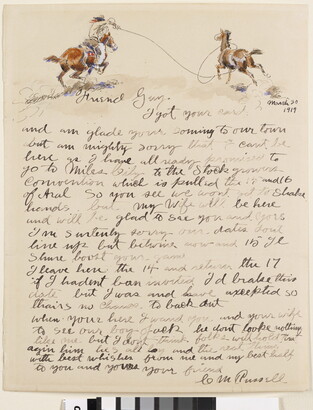 Friend Guy
March 20
1919
I got your card
and am glade your coming to our town
but am mighty sorry that I cant be
here as I have all ready promised to
go to Miles City to the Stock growers
Convention which is pulled the 15 and 16
of Aril So you see we wont get to Shake
hands but my Wife will be here
and will be glad to see you and yors
I'm surtenly sorry our dates dont
line up but betwine now and 15 Il
Shure boost your game
I leave here the 14 and return the 17
if I hadent ben invited I'd brake this
date but I was and have excepted so
thairs no chance to back out
when your here I want you and your wife
to see our boy Jack he dont looke nothing
like me but I dont think folks will hold that
agin him he's all boy and the real thing
with best whishes from me and my best half
to you and yours your friend
C M Russell